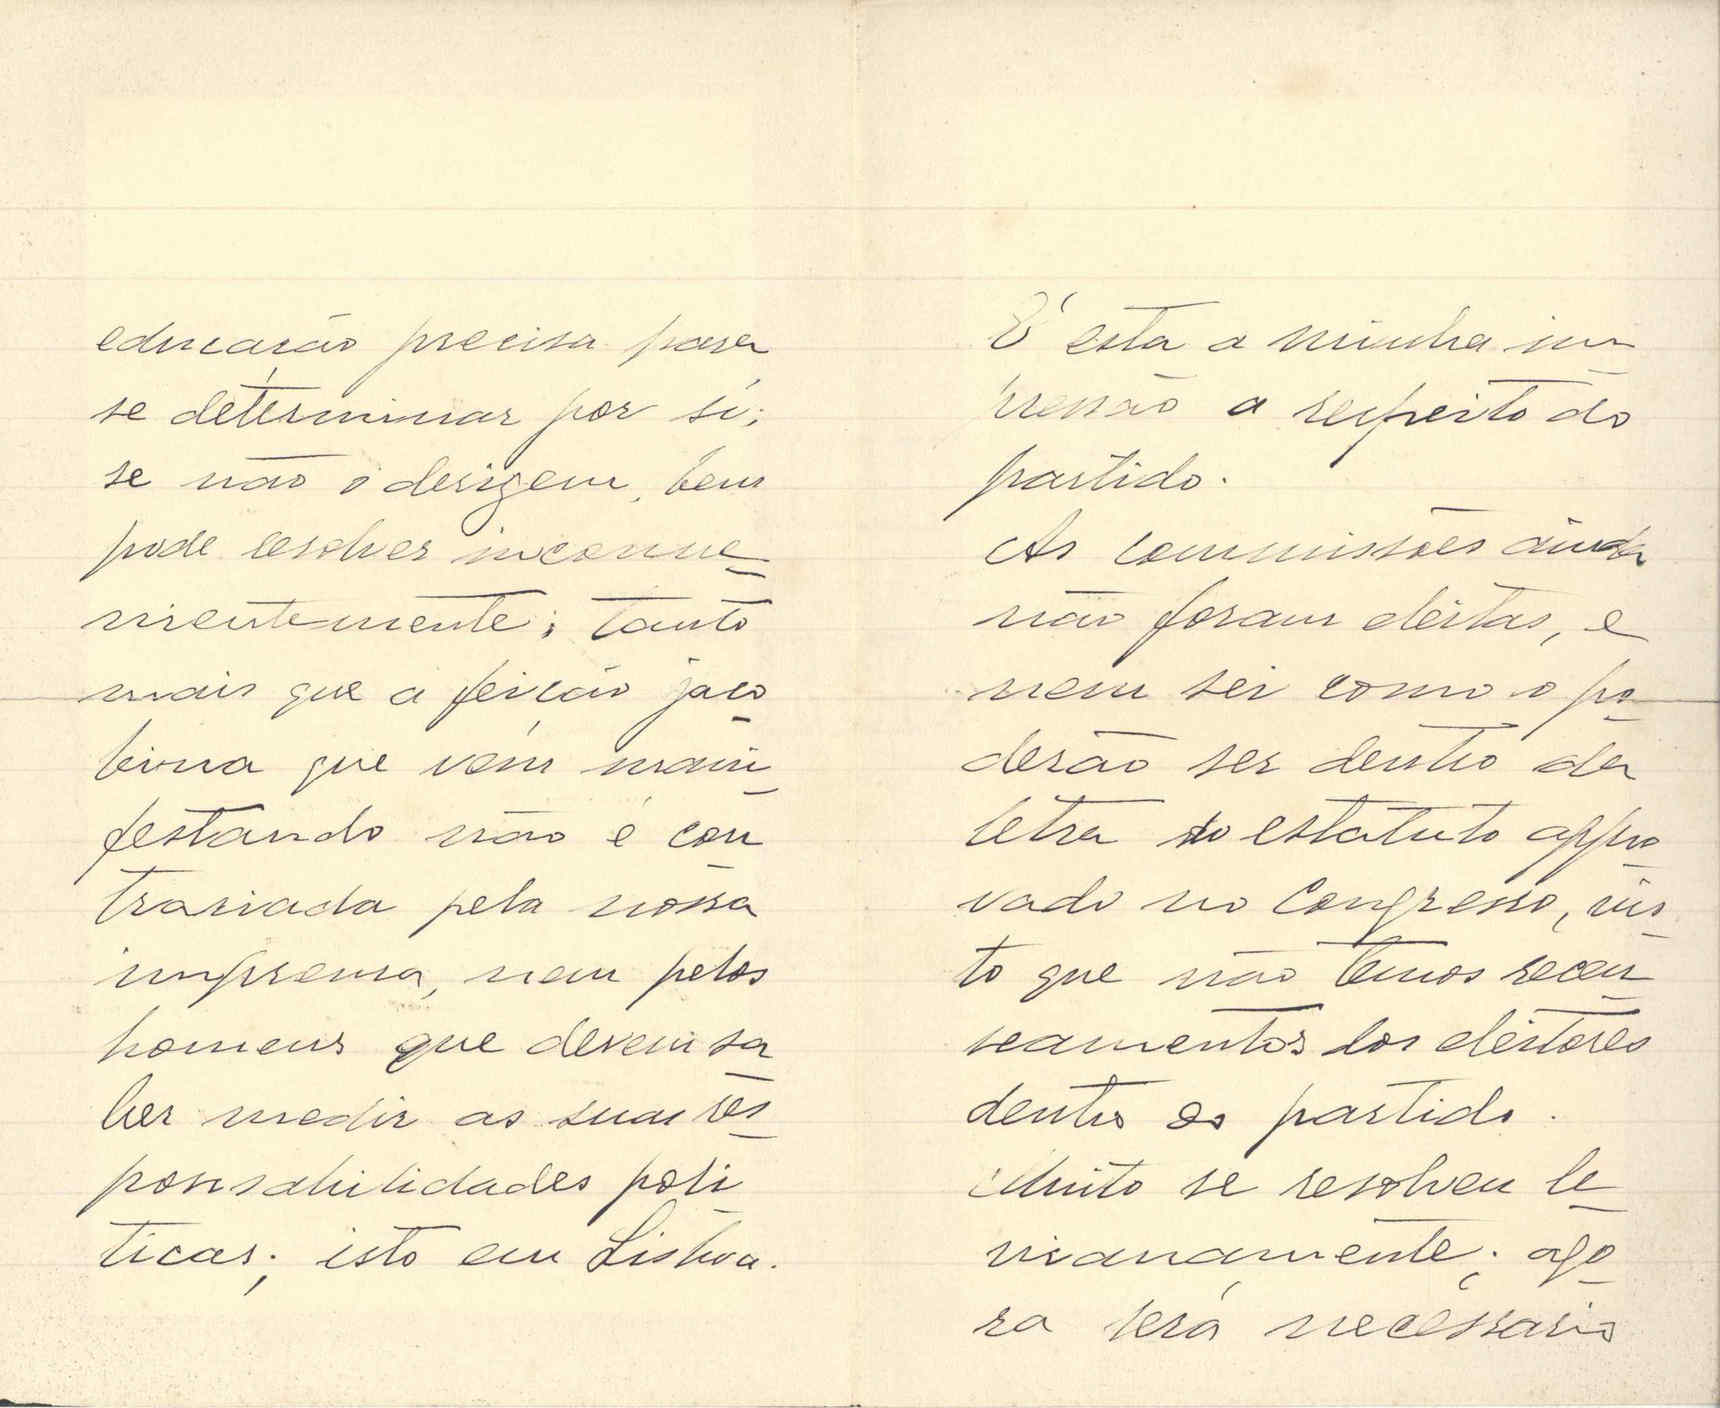 educação precisa para
se determinar por si;
se não o desigem, bem
pode resolver inconve
nientemente; tanto
mais que a feição jaco
bina que vem mani
festando não é con
trariada pela nossa
imprensa, nem pelos
homens que devem sa
ber medir as suas res
ponsabilidades poli
ticas; isto em Lisboa.
É esta a minha im
pressão a respeito do
partido.
As commissões ainda
não foram eleitas, e
nem sei como o po
derão ser dentro da
letra do estatuto appro
vado no Congresso, vis
to que não temos recen
seamentos dos eleitores
dentro do partido.
Muito se resolveu le
vianamente; ago
ra será necessario